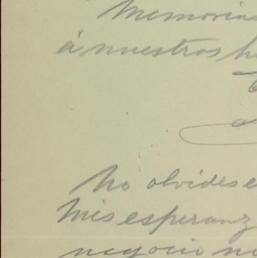 Memorias
á nuestros h
No olvides e
Mis esperanz
negocio no